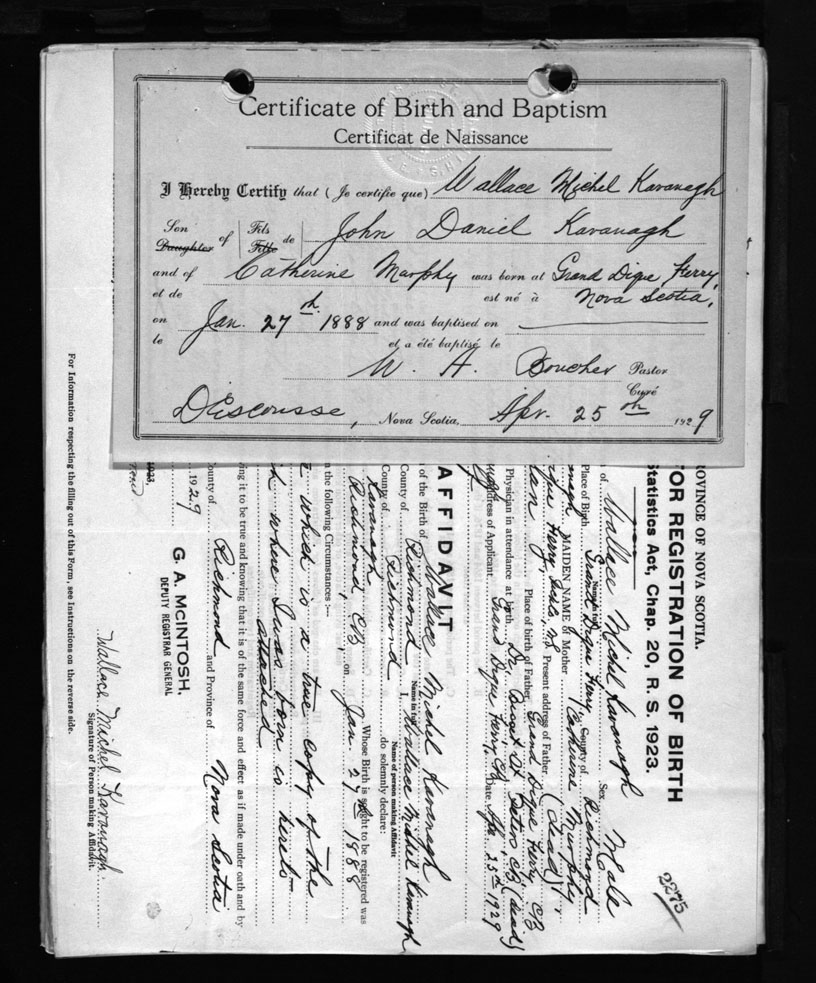 Certificate of Birth and Baptism
Certificat de Naissance
I Hereby Certify that ( Je certifie que) Wallace Michel Kavanagh
Son Daughter of Fils Fille de John Daniel Kavanagh
and of Catherine Murphy was born at Grand Dique Ferry,
et de est né à Nova Scotia,
on Jan. 27th 1888 and was baptised on
le et a été baptisé le
W. A. Boucher Pastor
Curé
D'Escousse, Nova Scotia, Apr. 25th 1929
ROVINCE OF NOVA SCOTIA.
TOR REGISTRATION OF BIRTH
Statistics Act, Chap. 20, R. S. 1923.
2275
of Wallace Michel Kavanagh Sex Male
Place of Birth Grand Dique Ferry County of Richmond
MAIDEN NAME of Mother Catherine Murphy
Present address of Father (dead)
Place of birth of Father Grand Dique Ferry, CB
Physician in attendance at birth Dr. Bisset St Peters CB (dead)
Address of Applicant Grand Dique Ferry, CB Date Apr. 25th 1929
AFFIDAVIT
of the Birth of Wallace Michel Kavanagh
Name in full
County of Richmond I, Wallace Michel Kavanagh
Name of person making Affidavit
County of Richmond do solemnly declare:
Kavanagh Whose Birth is sought to be registered was
Richmond, CB, on Jan. 27th 1888
n the following Circumstances :—
which is a true copy of the
where I was born is hereto
attached
ing it to be true and knowing that it is of the same force and effect as if made under oath and by
County of Richmond and Province of Nova Scotia
1929
G. A. McINTOSH.
DEPUTY REGISTRAR GENERAL
1923.
Wallace Michel Kavanagh
Signature of Person making Affidavit.
For Information respecting the filling out of this Form, see Instructions on the reverse side.